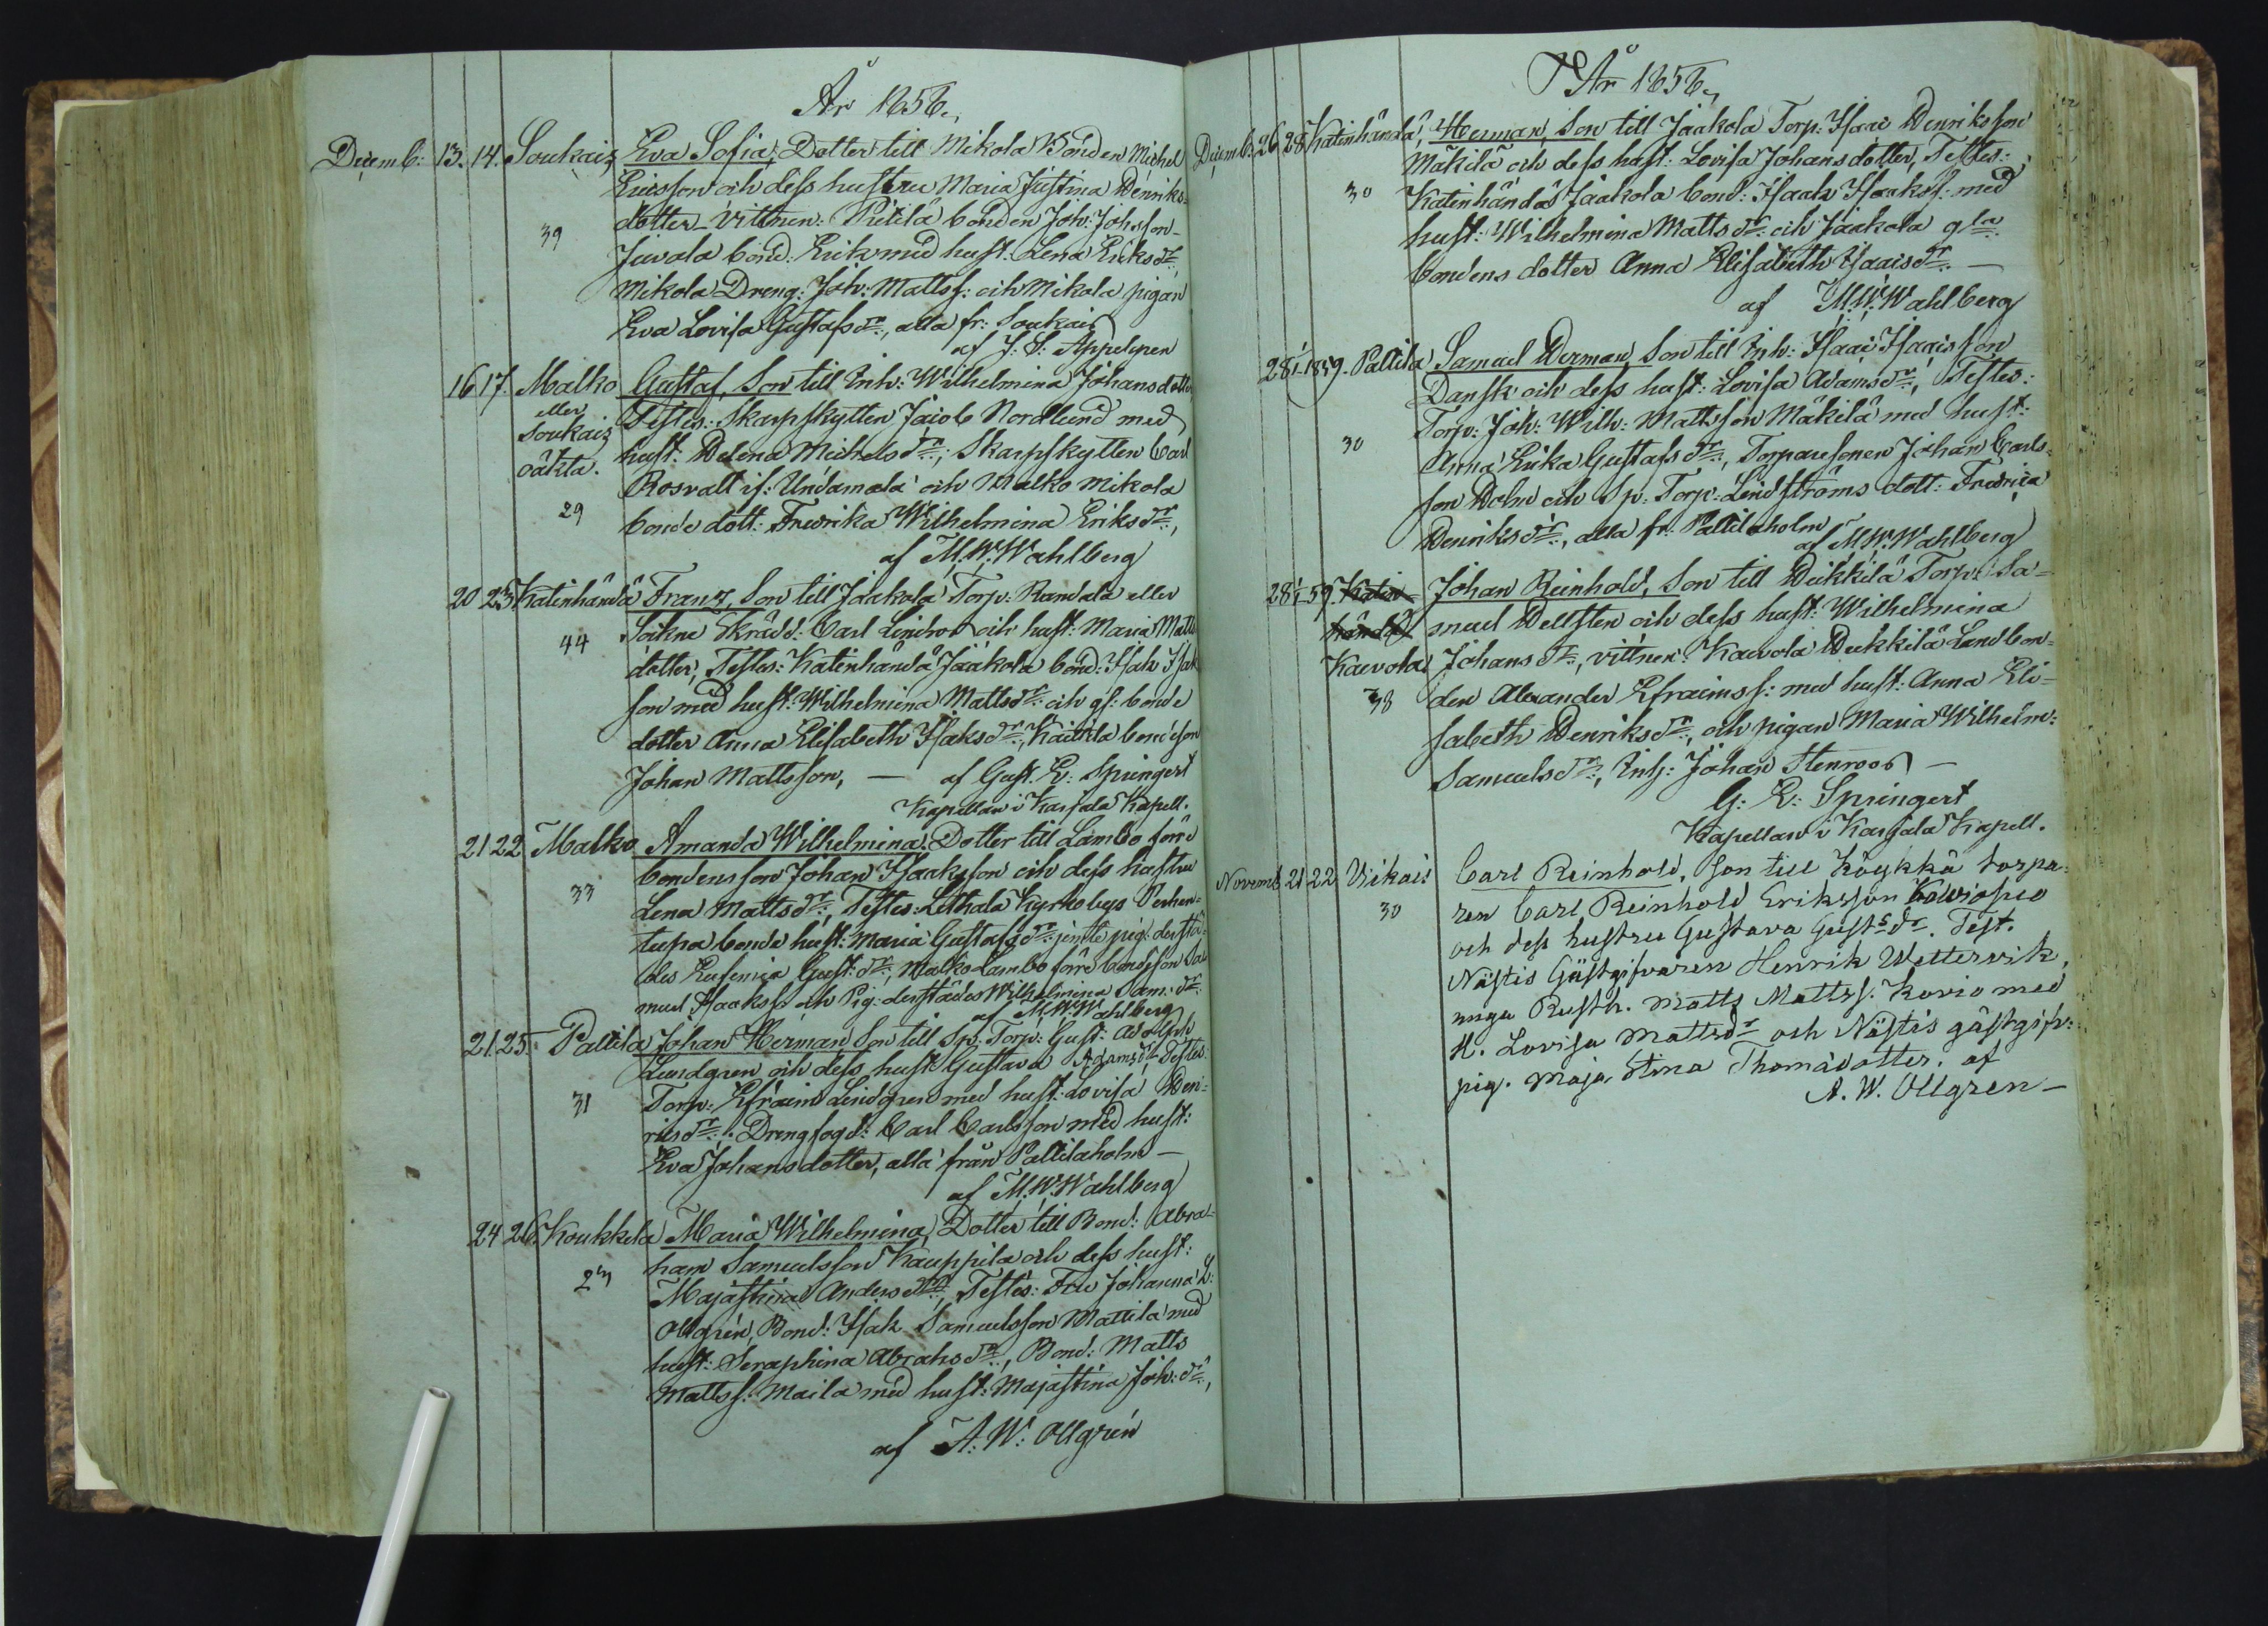 År 1858.,
Decemb: 13. 14. Soukais Eva Sofia, Dotter till Mikola Bonden Michel
Ericsson och dess hustru Maria Justina Henriks-
39 dotter. Vittnen: Pietilä bonden Joh: Johsson
Juvala bond: Erik med hust: Lena Eriks dr
Mikola Dreng: Joh: Matts s: och Mikola pigan
Eva Lovisa Gustafs dr, alla fr: Soukais
af J: S: Appelgren
16 17. Malko Gustaf, Son till Inh: Wilhelmina Johansdotter,
eller Testes: Skarpskytten Jacob Nordlund med
Soukais hust: Helena Michels dr:, Skarpskytten Carl
oäkta. Rosvall if: Undamala och Malko Mikola
29 bonde dott: Fredrika Wilhelmina Eriks dr:,
af M. W. Wahlberg
20 23 Katinhändä Franz, Son till Jaakola Torp: Randala eller
44 Sockne Skrädd: Carl Lindroos och hust: Maria Matts
dotter, Testes: Katinhändä Jaakola bond: Isak Isak
son med hust: Wilhelmina Matts dr: och gl: bonde
dotter Anna Elisabeth Isaks dr:, bondeson
Johan Mattsson, — af Gust. E: Springert
Kapellan i Karjala Kapell.
21 22 Malko Amanda Wilhelmina, Dotter till Lambo förre
33 bondens son Johan Isaaksson och dess hustru
Lena Matts dr:, Testes: Lethala Kyrkobys Perhen-
tupa bonde hust: Maria Gustafs dr: jemte pig: derstä-
des Eufemia Gust: dr:, Malko Lambo förre bondeson Sa
muel Isaakss: och Pig: derstädes Wilhelmina Sam: dr:
af M. W. Wahlberg
21. 25. Pallila Johan Herman Son till Sp: Torp: Gust: Adolph
Lundgren och dess hust: Gustava Adams dr: Testes:
31 Torp: Efraim Lindgren med hust: Lovisa Hen-
rics dr:, Drengfogd: Carl Carlsson med hust:
Eva Johansdotter, alla från Pallilaholm —
af M. W. Wahlberg
24 26. Koukkela Maria Wilhelmina, Dotter till Bond: Abra-
ham Samuelsson Kauppila och dess hust:
Majastina Anders dr:, Testes: Fru Johanna L:
Ollgrén, Bond: Isak Samuelsson Mattila med
hust: Seraphina Abrahs dr:, Bond: Matts
Matts s: Maila med hust: Majastina Joh: dr:,
af A: W: Ollgrén
År 1858.,
Decemb: 26 28 Katinhändä, Herman, Son till Jaakola Torp: Isaac Henriksson
Mäkilä och dess hust: Lovisa Johansdotter, Testes:
30 Katinhändä Jaakola bond: Isaak Isaakss: med
hust: Wilhelmina Matts dr: och Jaakola gla
bondens dotter Anna Elisabeth Isaacs dr: —
af M. W. Wahlberg
28 1/1 1859. Pallila Samuel Herman, Son till Inh: Isaac Isaacsson
Dansk och dess hust: Lovisa Adams dr:, Testes:
Torp: Joh: Wilh: Mattsson Mäkilä med hust:
30 Anna Erika Gustafs dr:, Torparesonen Johan Carls-
son Holm och Sp: Torp: Lindströms dott: Fredrica
Henriks dr:, alla fr: Pallilaholm
af M. W. Wahlberg
28 1/1 59. Katin- Johan Reinhold, Son till Heikkilä Torp: Sa-
händä muel Hellsten och dess hust: Wilhelmina
Kaivola Johans dr:, vittnen: Kaivola Heikkilä Landbon-
38 den Alexander Efraims s: med hust: Anna Eli-
sabeth Henriks dr:, och pigan Maria Wilhelm:
Samuels dr:, Inh: Johan Stenroos —
G: E: Springert
Kapellan i Karjala Kapell.
Novemb 21 22 Vikais Carl Reinhold, Son till Köykkä torpa-
30 ren Carl Reinhold Eriksson
och dess hustru Gustava Gusts dr. Test.
Nästis Gästgifvaren Henrik Wetterwik,
unga Rusth. Matts Mattss. Kovio med
H. Lovisa Mattsdr och Nästis gästgifv:
pig. Maja Stina Thomadotter. af
A. W. Ollgren —